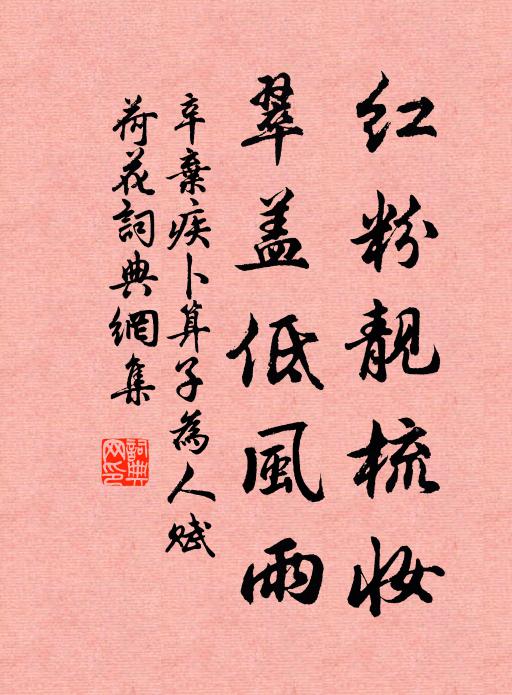 红粉靓梳妆
翠盖低風雨
辛棄疾卜算子為人赋
荷花詞典網集
詞典网印